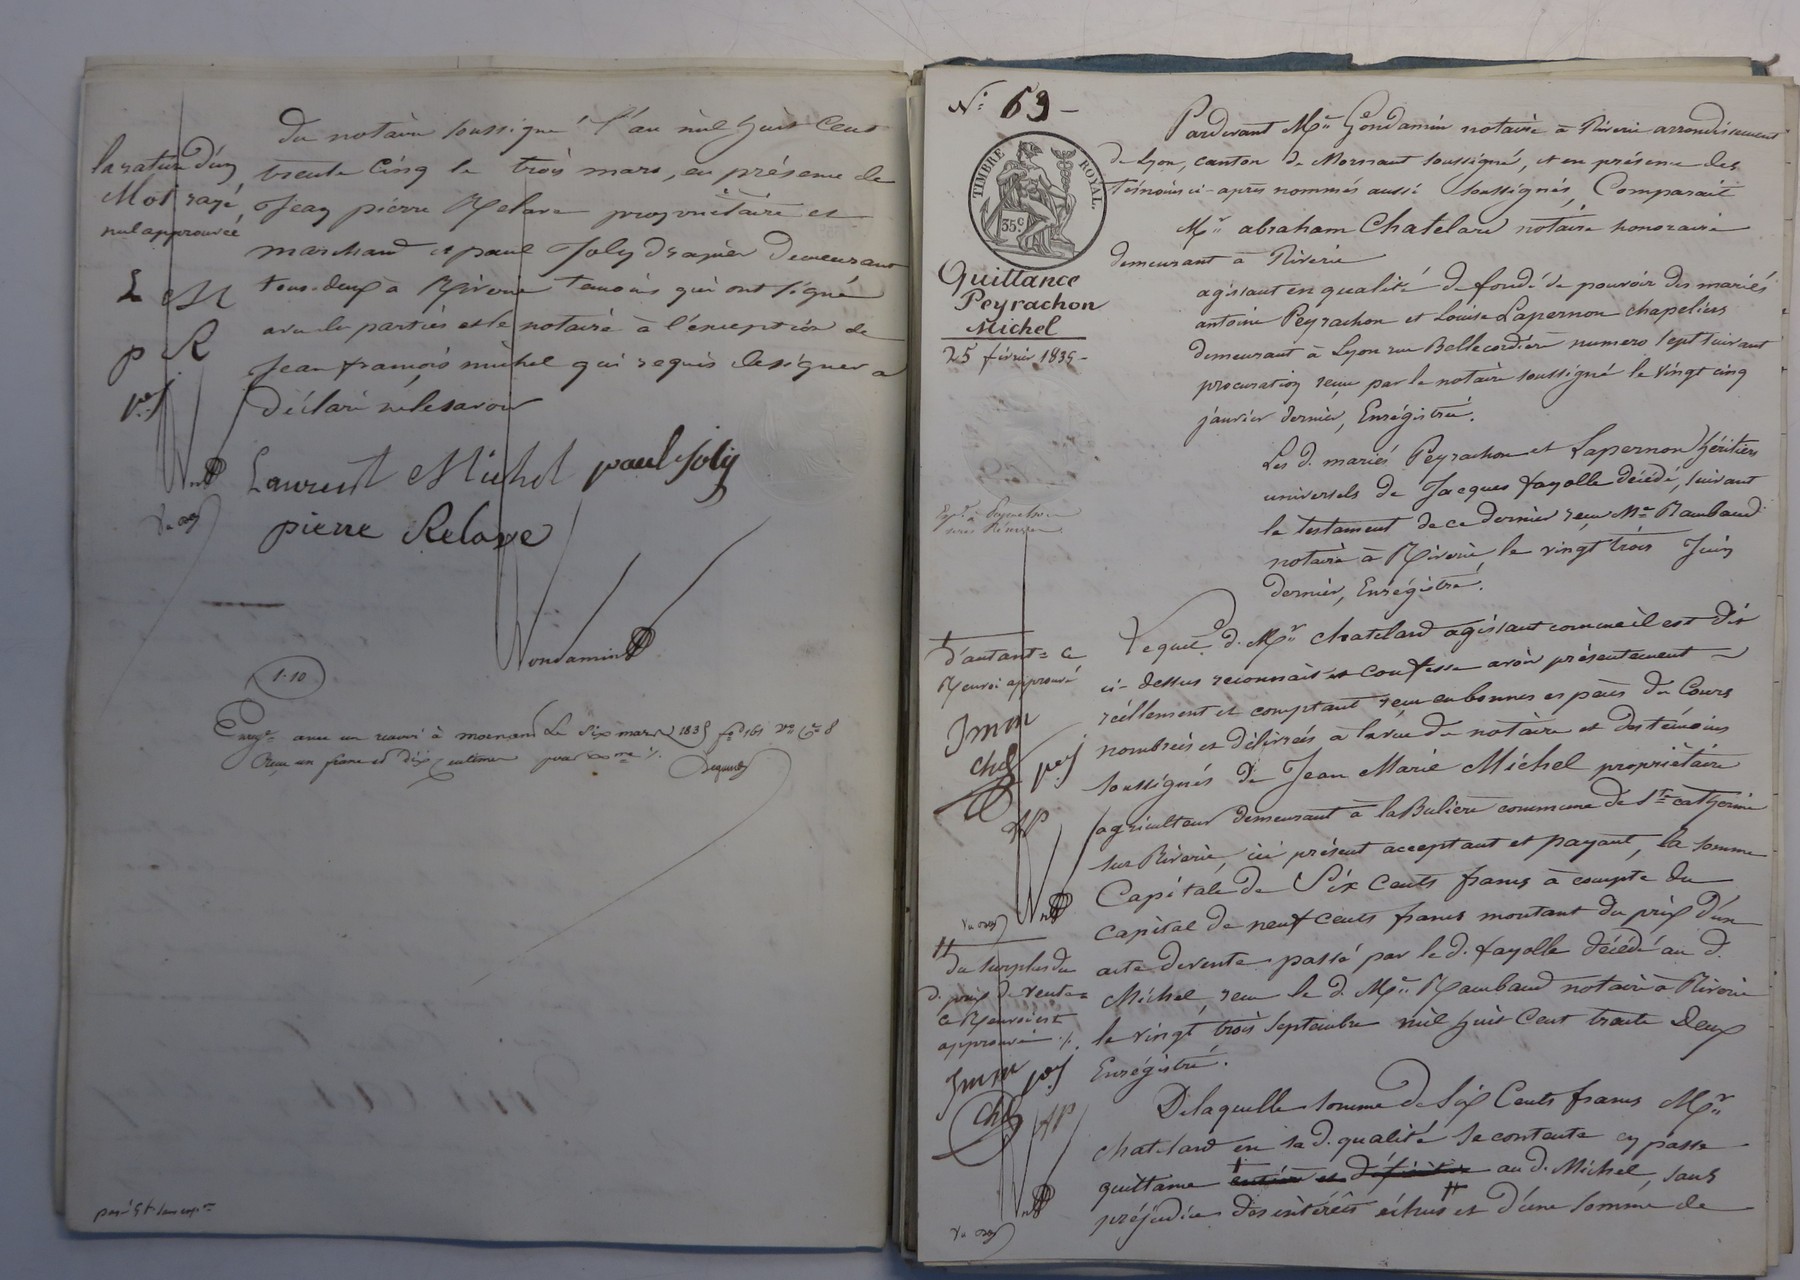 du notaire soussigné l'an mil huit cent
trente cinq le trois mars, en présence de
Jean pierre Relave propriétaire et
marchand et paul Joly drapier demeurant
tous deux à Riverie temoins qui ont signé
avec les parties et le notaire à l'exception de
Jean françois michel qui requis de signer a
déclaré ne le savoir
la rature d'un
Mot rayé,
nul approuvée
L M
p R
p.j
Laurent Michel paul Joly
pierre Relave
Gondamin
1-10
Enregt. avec un renvoi à mornant Le six mars 1835 fo. 161 Vo. Ce. 8
Reçu un franc et dix centimes pour
N.o 69
TIMBRE ROYAL
35c.
Quittance
Peyrachon
Michel
25 février 1835
Pardevant Me. Gondamin notaire à Riverie arrondissement
de Lyon, canton de Mornant soussigné, et en présence des
témoins ci-après nommés aussi soussignés, Comparait
Mr. abraham Chatelard notaire honoraire
demeurant à Riverie
agissant en qualité de fondé de pouvoir des mariés
antoine Peyrachon et Louise Lapernon chapeliers
demeurant à Lyon rue Bellecordière numero sept suivant
procuration reçue par le notaire soussigné le vingt cinq
janvier dernier, Enrégistrée.
Les d. mariés Peyrachon et Lapernon héritiers
universels de Jacques fayolle décédé, suivant
le testament de ce dernier reçu Me. Rambaud
notaire à Riverie, le vingt trois Juin
dernier, Enrégistré.
Lequel d. Mr. Chatelard agissant comme il est dit
ci-dessus reconnait et confesse avoir présentement
réellement et comptant reçu en bonnes espèces du Cours
nombrées et délivrées à la vue du notaire et des témoins
soussignés de Jean Marie Michel propriétaire
agriculteur demeurant à la Bulière commune de Ste. catherine
sur Riverie, ici présent acceptant et payant, la somme
Capitale de Six Cents francs à compte du
capital de neuf cents francs montant du prix d'un
acte de vente passé par le d. fayolle décédé au d.
Michel, reçu le d. Me. Rambaud notaire à Riverie
le vingt trois septembre mil huit cent trente Deux
Enrégistré.
De laquelle somme de Six Cents francs Mr.
chatelard en sa d. qualité se contente en passe
quittance entière et définitive au d. Michel, sans
préjudice des intérêts échus et d'une somme de
d'autant = ce
Renvoi approuvé
Jmm
chd
pj
RP
du surplus du
d. prix de vente =
ce Renvoi est
approuvé
Jmm pj
chd RP